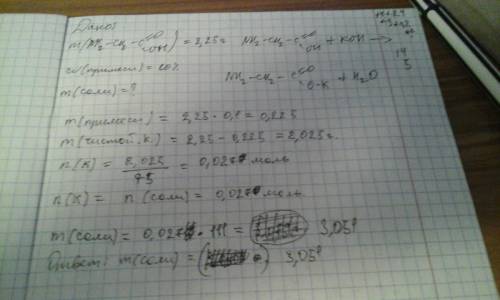 Дано:
m(NH₂-CH₂-C=O OH) = 2,25г NH₂-CH₂-C=O OH + KOH →
ω(примеси) = 10% NH₂-CH₂-C=O O-K + H₂O
m(соли) = ?
m(примеси) = 2,25 · 0,1 = 0,225
m(чистой к.) = 2,25 - 0,225 = 2,025г.
n(к) = 2,025 / 75 = 0,027 моль
n(к) = n(соли) = 0,027 моль.
m(соли) = 0,027 · 111 = 3,051
Ответ: m(соли) = 3,051